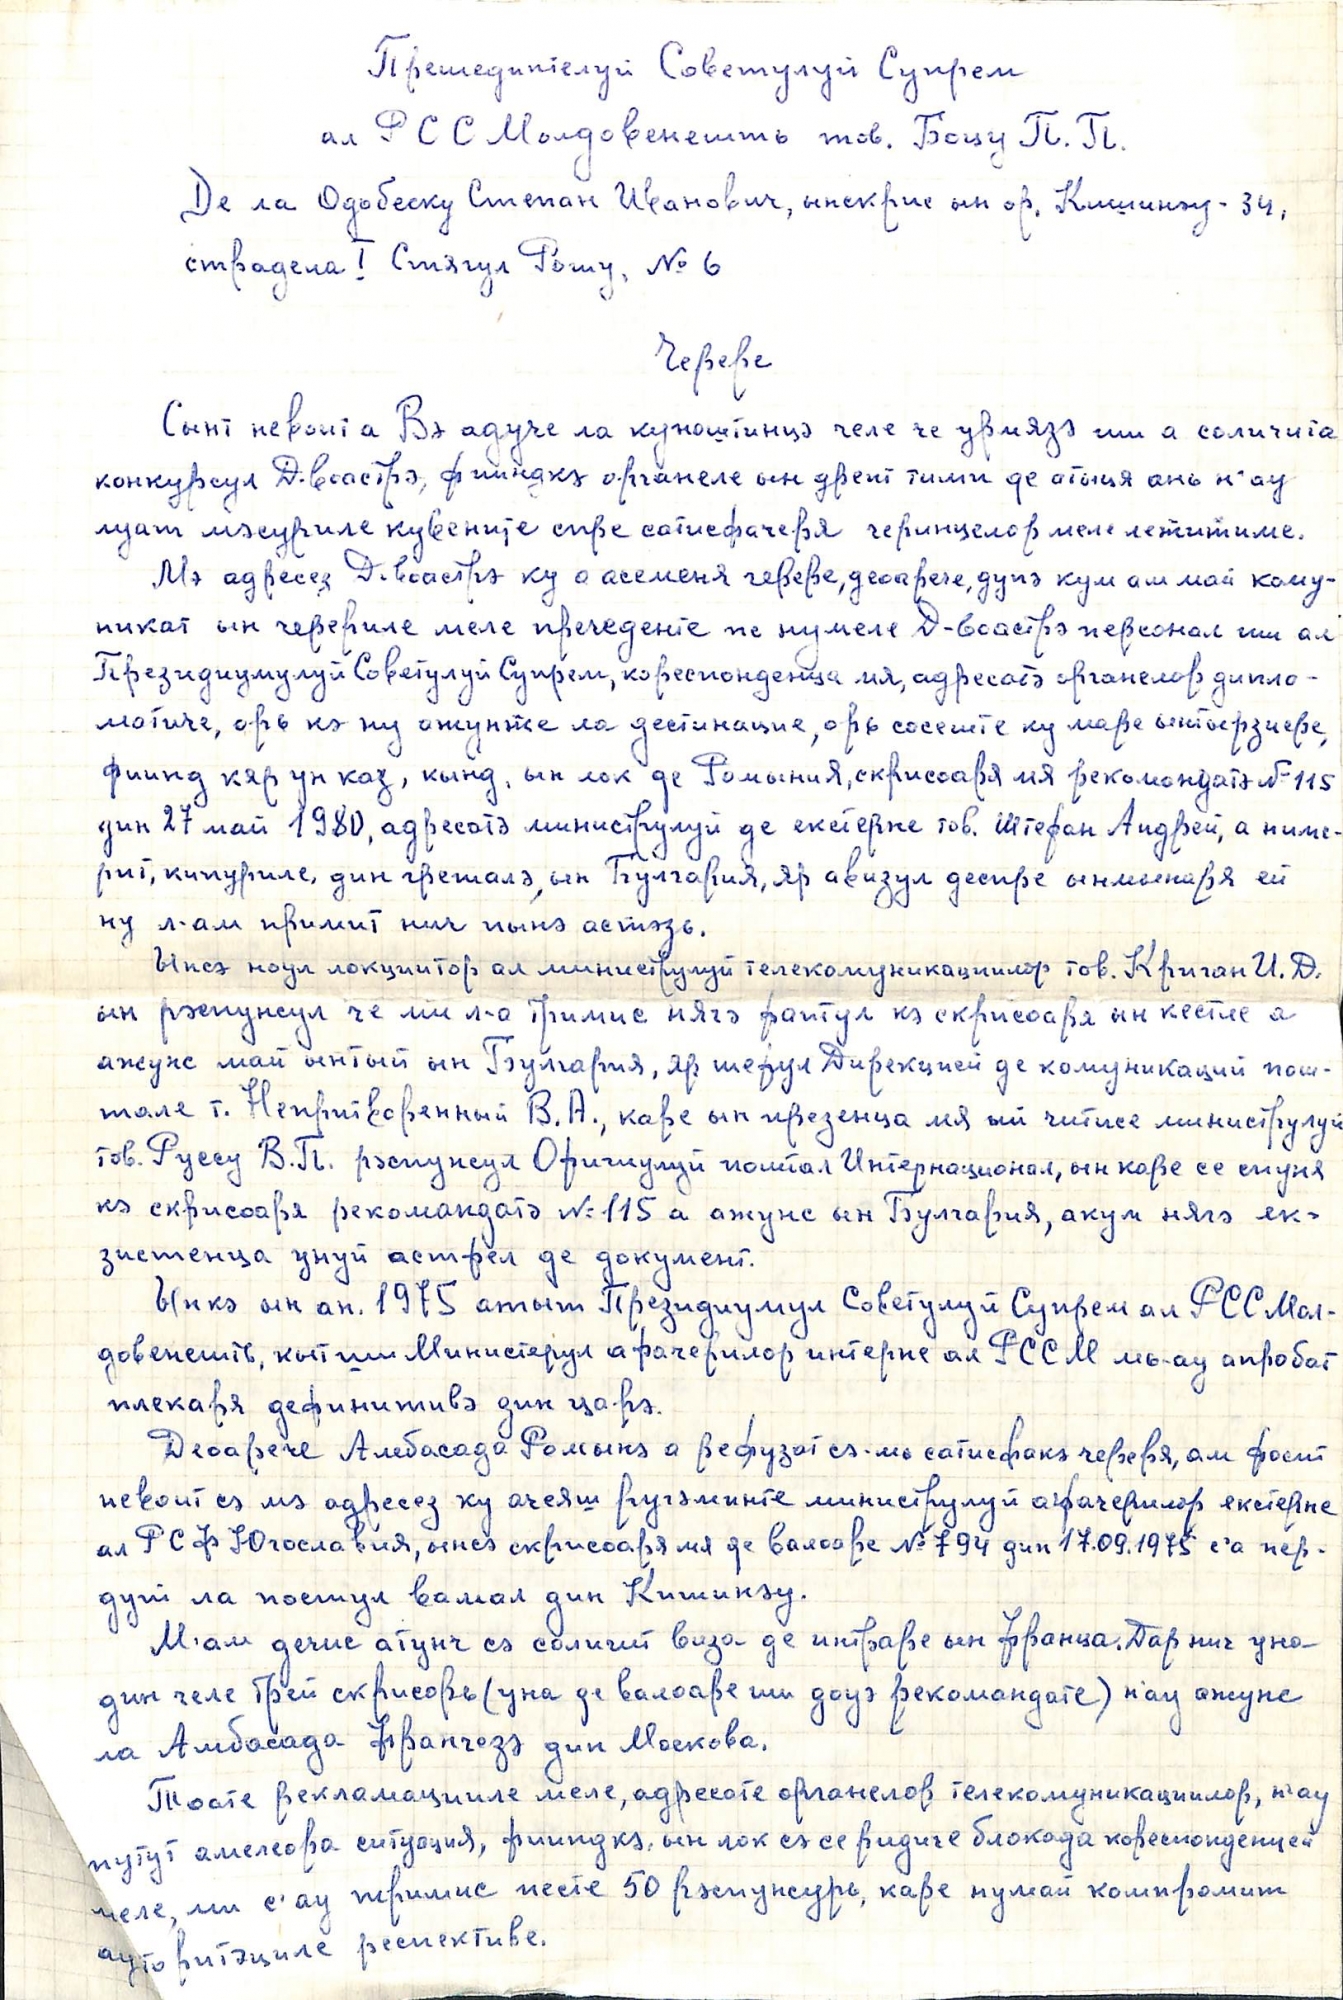 Прешединтелуй Советулуй Супрем
ал РССМолдовенешть тов. Боцу П.П.
Де ла Одобеску Степан Иванович, ынскрис ын ор. Кишинэу-34,
страдела I Стягул Рошу, № 6
Черере
Сынт невоит а Вэ адуче ла куноштинцэ челе че урмязэ ши а соличита
конкурсул Д-воастрэ, фииндкэ органеле ын дрепт тимп де атыця ань н'ау
луат мэсуриле кувените спре сатисфачеря черинцелор меле лежитиме.
Мэ адресез Д-воастрэ ку о асеменя черере, деоарече, дупэ кум ам май кому-
никат ын черериле меле пречеденте пе нумеле Д-воастрэ персонал ши ал
Президиумулуй Советулуй Супрем, кореспонденца мя, адресатэ органелор дипло-
матиче, орь кэ ну ажунже ла дестинацие, орь сосеште ку маре ынтырзиере,
фиинд кяр ун каз, кынд, ын лок де Ромыния, скрисоаря мя рекомандатэ № 115
дин 27 май 1980, адресатэ министрулуй де екстерне тов. Штефан Андрей, а ниме-
рит, кипуриле, дин грешалэ, ын Булгария, яр авизул деспре ынмынаря ей
ну л-ам примит нич пынэ астэзь.
Ынсэ ноул локциитор ал министрулуй телекомуникациилор тов. Криган И.Д.
ын рэспунсул че ми л-а тримис нягэ фаптул кэ скрисоаря ын кестие а
ажунс май ынтый ын Булгария, яр шефул Дирекцией де комуникаций пош-
тале т. Непритворенный В.А., каре ын презенца мя ый читисе министрулуй
тов. Руссу В.П. рэспунсул Офичиулуй поштал Интернационал, ын каре се спуня
кэ скрисоаря рекомандатэ № 115 а ажунс ын Булгария, акум нягэ ек-
зистенца унуй астфел де документ.
Ынкэ ын ан. 1975 атыт Президиумул Советулуй Супрем ал РССМол-
довенешть, кыт ши Министерул афачерилор интерне ал РССМ мь-ау апробат
плекаря дефинитивэ дин царэ.
Деоарече Амбасада Ромынэ а рефузат сэ-мь сатисфакэ череря, ам фост
невоит сэ мэ адресез ку ачеяш ругэминте министрулуй афачерилор екстерне
ал РСФ Югославия, ынсэ скрисоаря мя де валоаре № 794 дин 17.09.1975 с'а пер-
дут ла постул вамал дин Кишинэу.
М'ам дечис атунч сэ соличит виза де интраре ын Франца. Дар нич уна
дин челе трей скрисорь (уна де валоаре ши доуэ рекомандате) н'ау ажунс
ла Амбасада Франчезэ дин Москова.
Тоате рекламацииле меле, адресате органелор телекомуникациилор, н'ау
путут амелиора ситуация, фииндкэ, ын лок сэ се ридиче блокада кореспонденцей
меле, ми с'ау тримис песте 50 рэспунсурь, каре нумай компромит
ауторитэциле респективе.